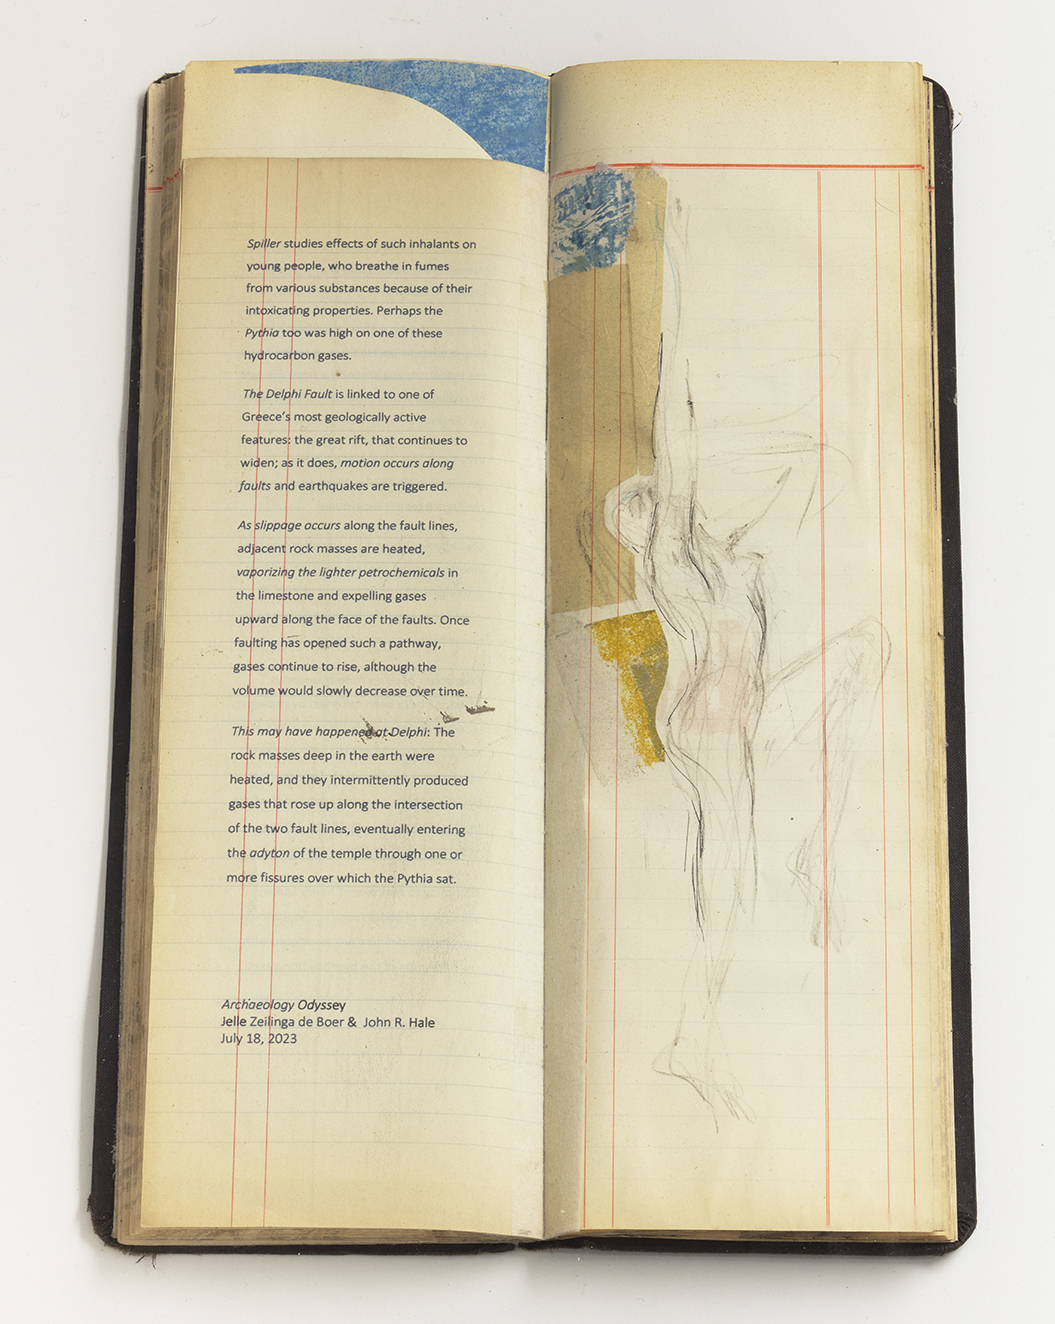 Spiller studies effects of such inhalants on
young people, who breathe in fumes
from various substances because of their
intoxicating properties. Perhaps the
Pythia too was high on one of these
hydrocarbon gases.
The Delphi Fault is linked to one of
Greece's most geologically active
features: the great rift, that continues to
widen; as it does, motion occurs along
faults and earthquakes are triggered.
As slippage occurs along the fault lines,
adjacent rock masses are heated,
vaporizing the lighter petrochemicals in
the limestone and expelling gases
upward along the face of the faults. Once
faulting has opened such a pathway,
gases continue to rise, although the
volume would slowly decrease over time.
This may have happened at Delphi: The
rock masses deep in the earth were
heated, and they intermittently produced
gases that rose up along the intersection
of the two fault lines, eventually entering
the adyton of the temple through one or
more fissures over which the Pythia sat.
Archaeology Odyssey
Jelle Zeilinga de Boer & John R. Hale
July 18, 2023